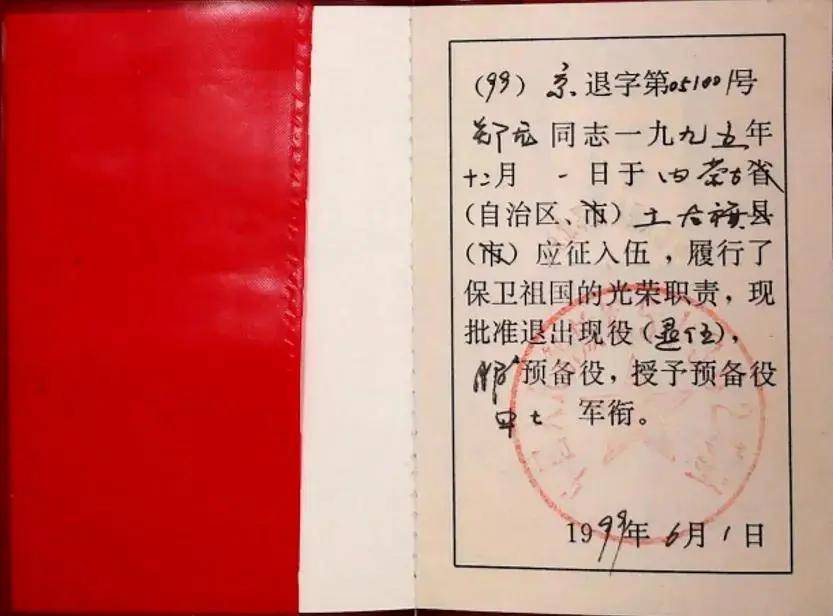 (99) 京退字第051001号
郑龙同志一九九五年
十二月一日于内蒙古省
(自治区、市)土右旗县
(市)应征入伍,履行了
保卫祖国的光荣职责,现
批准退出现役(退伍),
服预备役,授予预备役
中士军衔。
1999年6月1日